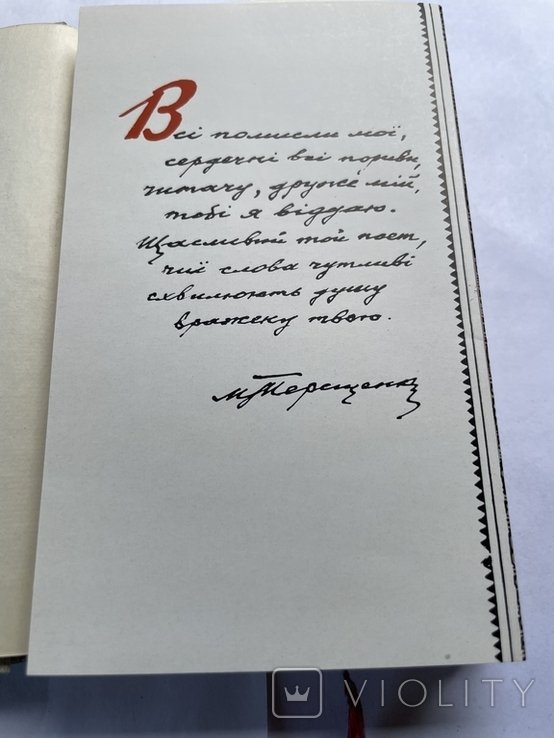 Всі помисли мої,
сердечні всі пориви,
читачу, друже мій,
тобі я віддаю.
Щасливий той поет,
чиї слова чутливі
схвилюють душу
вражену твою.
М Терещенко
VIOLITY